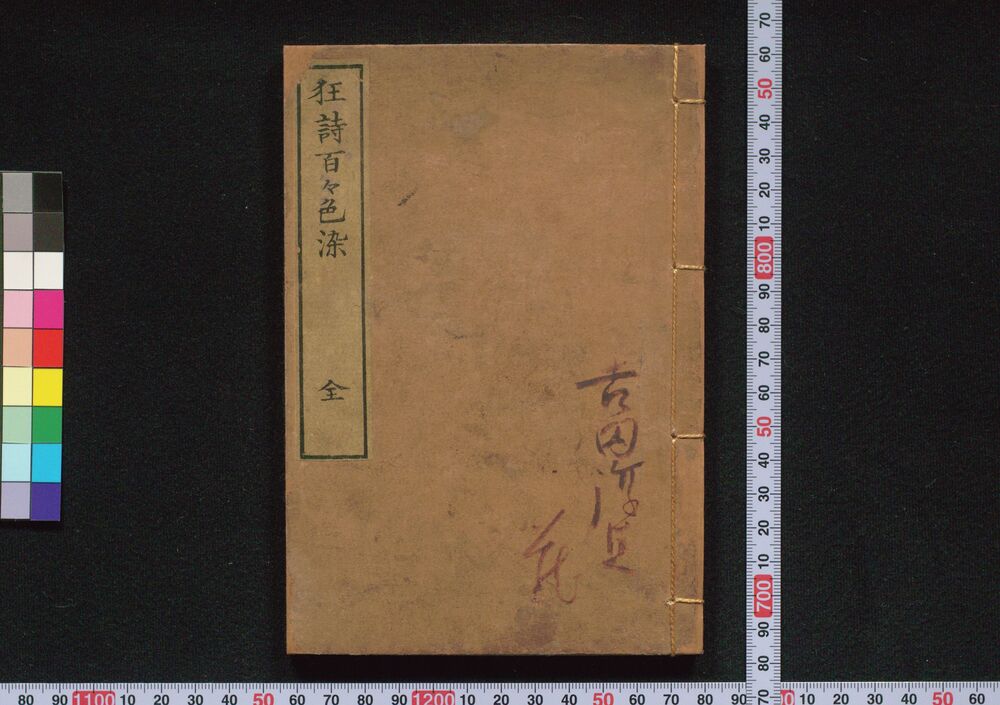 狂詩百々色染 全
70
60
50
40
30
20
10
800
90
80
70
60
50
40
30
20
10
700
90
80
70
80 90 1100 10 20 30 40 50 60 70 80 90 1200 10 20 30 40 50 60 70 80 90 0 10 20 30 40 50 60